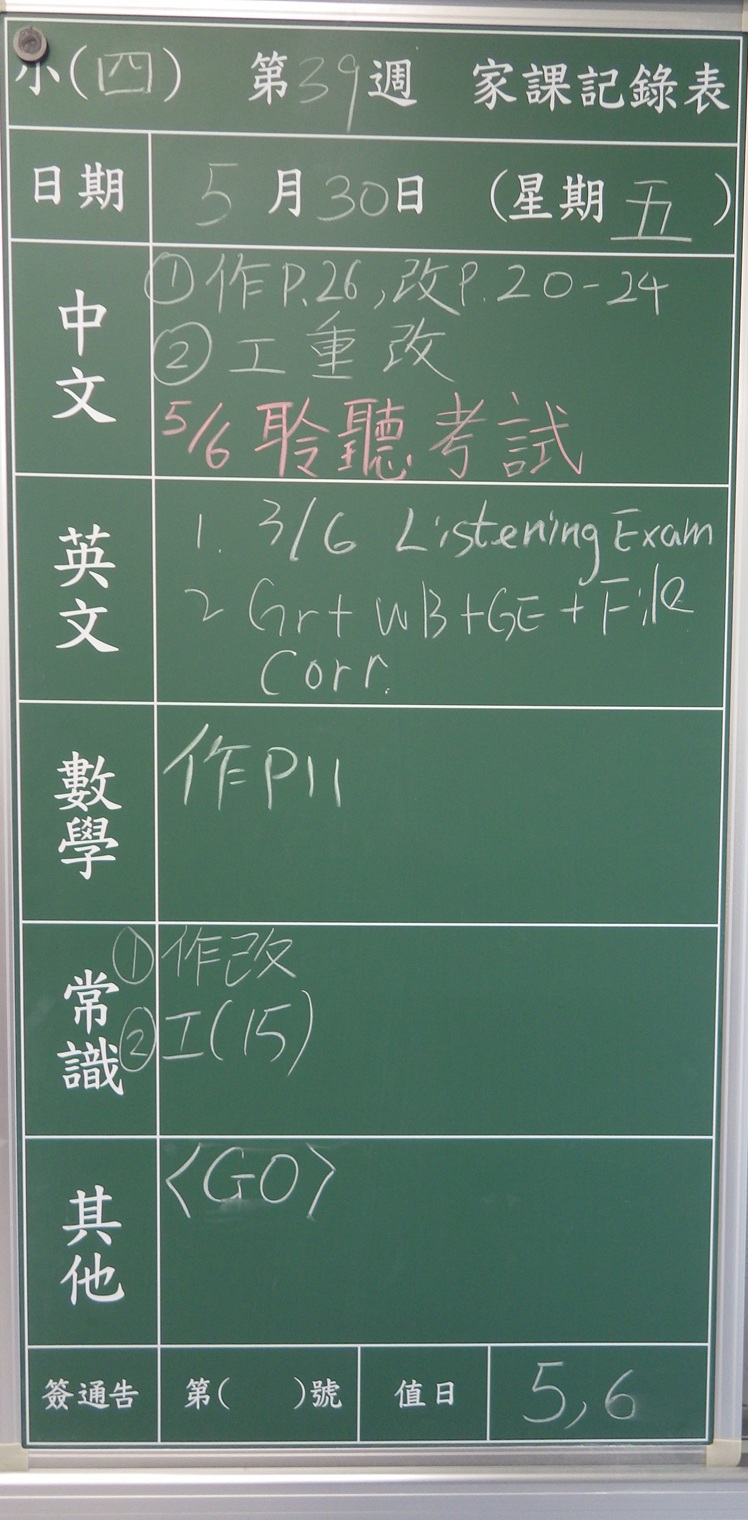 小(四) 第39週 家課記錄表
日期 5月30日 (星期五)
中文
①作P.26,改P.20-24
②工重改
5/6 聆聽考試
英文
1. 3/6 Listening Exam
2 Gr+WB+GE+File
Corr.
數學
作P11
常識
①作改
②工(15)
其他
〈GO〉
簽通告 第( )號 值日 5,6